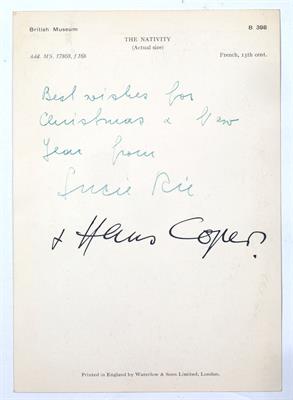 British Museum B 398
THE NATIVITY
(Actual size)
Add. MS. 17868, f 16b French, 13th cent.
Best wishes for
Christmas & New
Year from
Lucie Rie
& Hans Coper.
Printed in England by Waterlow & Sons Limited, London.